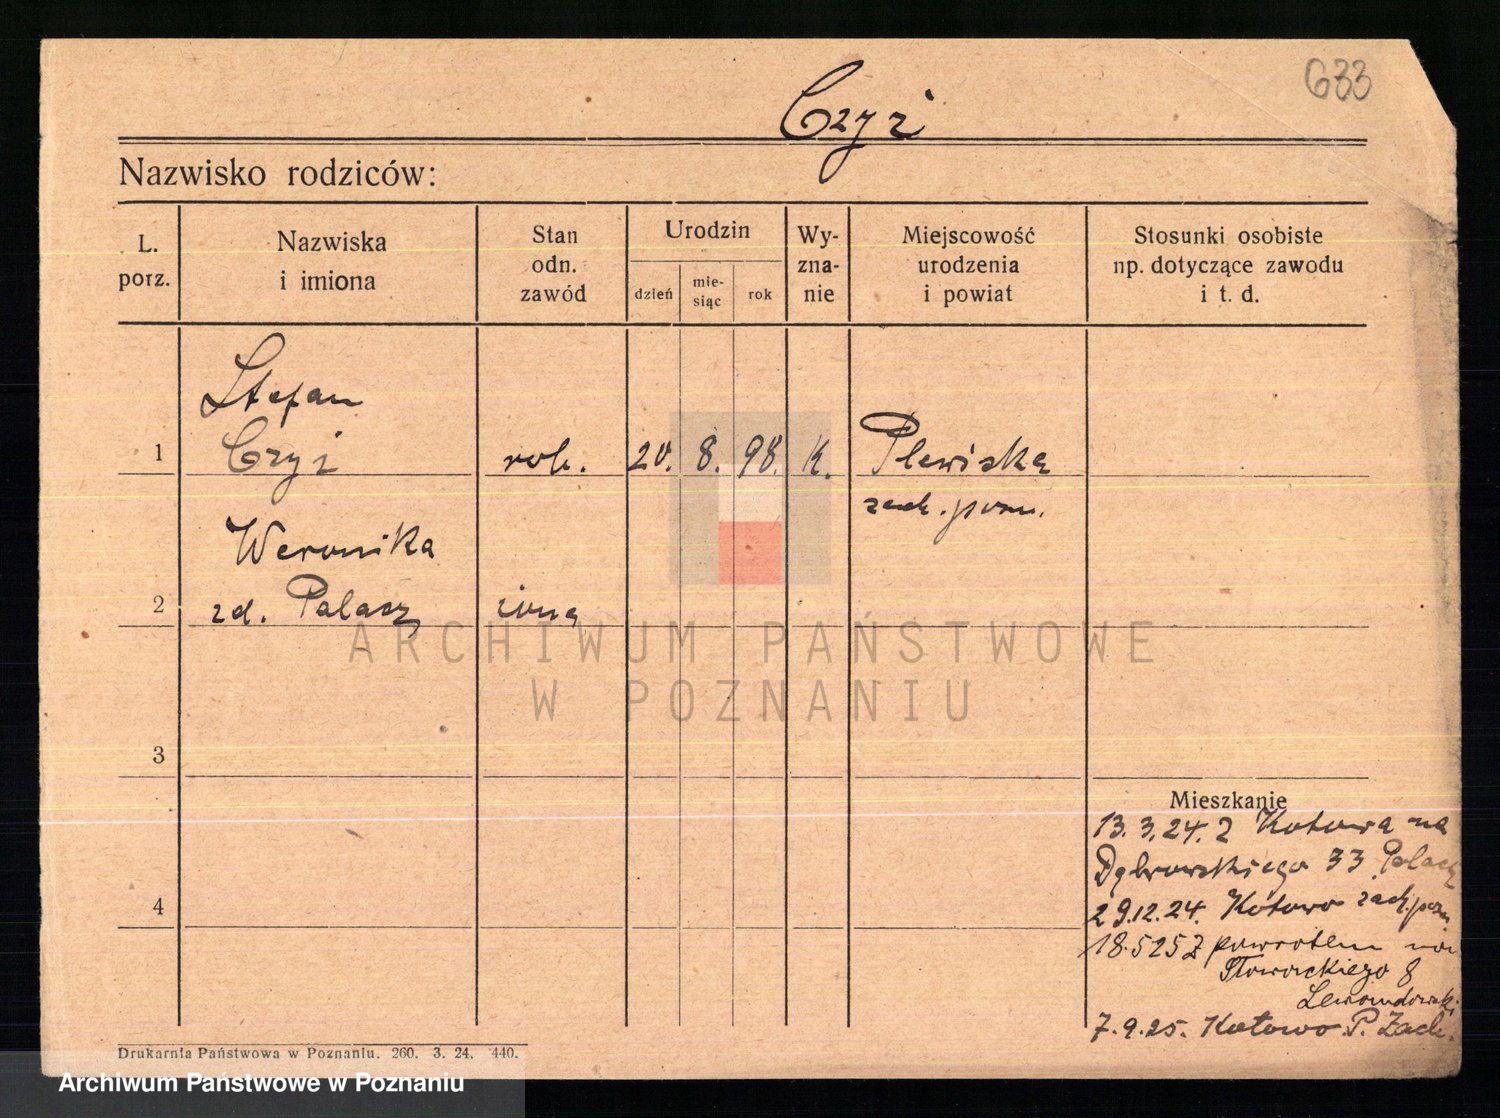 633
Czyż
Nazwisko rodziców:
L. porz.
Nazwiska i imiona
Stan odn. zawód
Urodzin
dzień
mie- siąc
rok
Wy- zna- nie
Miejscowość urodzenia i powiat
Stosunki osobiste np. dotyczące zawodu i t. d.
Stefan
1 Czyż rob. 20. 8. 98. K. Plewiska
zach. pozn.
Weronika
2 zd. Palacz żona
ARCHIWUM PAŃSTWOWE
W POZNANIU
3
Mieszkanie
13.3.24. Z Kotowa na
Dąbrowskiego 33 Palacz
4
29.12.24. Kotowo zach. pozn.
18.5 25 Z powrotem na
Słowackiego 8
Lewandowsk.
7.9.25. Kotowo P. Zach.
Drukarnia Państwowa w Poznaniu. 260. 3. 24. 440.
Archiwum Państwowe w Poznaniu